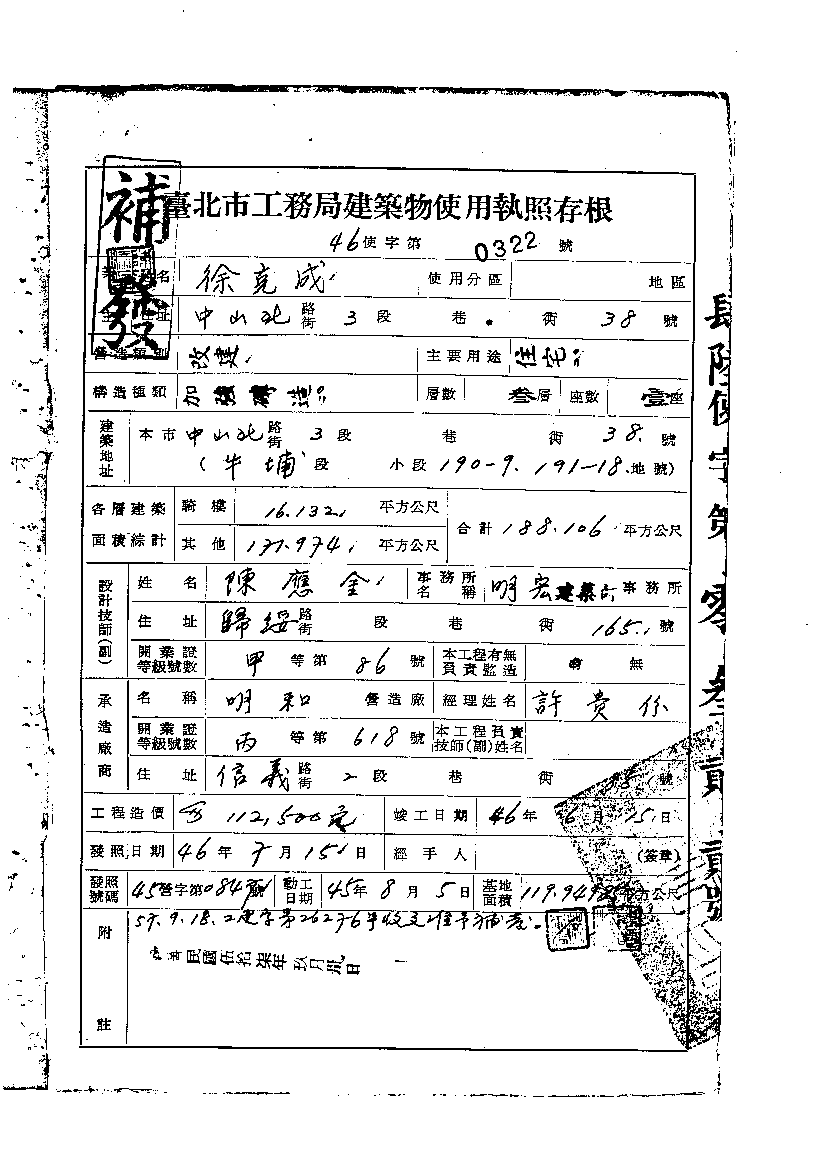 補發
臺北市工務局建築物使用執照存根
46使字第 0322 號
姓名 徐克成 使用分區 地區
住址 中山北路街 3段 巷 衖 38 號
營造類別 改建 主要用途 住宅
構造種類 加強磚造 層數 叁層 座數 壹座
建築地址 本市中山北路街 3段 巷 衖 38 號
(牛埔段 小段 190-9. 191-18 地號)
各層建築面積綜計 騎樓 16.132 平方公尺 合計 188.106 平方公尺
其他 171.974 平方公尺
設計技師(副) 姓名 陳應金 事務所名稱 明宏建築 事務所
住址 歸綏路街 段 巷 衖 165 號
開業證等級號數 甲等第 86 號 本工程有無負責監造 有 無
承造廠商 名稱 明和 營造廠 經理姓名 許貴
開業證等級號數 丙等第 618 號 本工程負責技師(副)姓名
住址 信義路街 2段 巷 衖 號
工程造價 112,500元 竣工日期 46年 6月 15日
發照日期 46年 月 15日 經手人 (簽章)
發照號碼 45營字第084號 動工日期 45年 8月 5日 基地面積 119.949 平方公尺
附註 57.9.18.
民國伍拾柒年 月 日
肆陸使字第零叁貳貳號